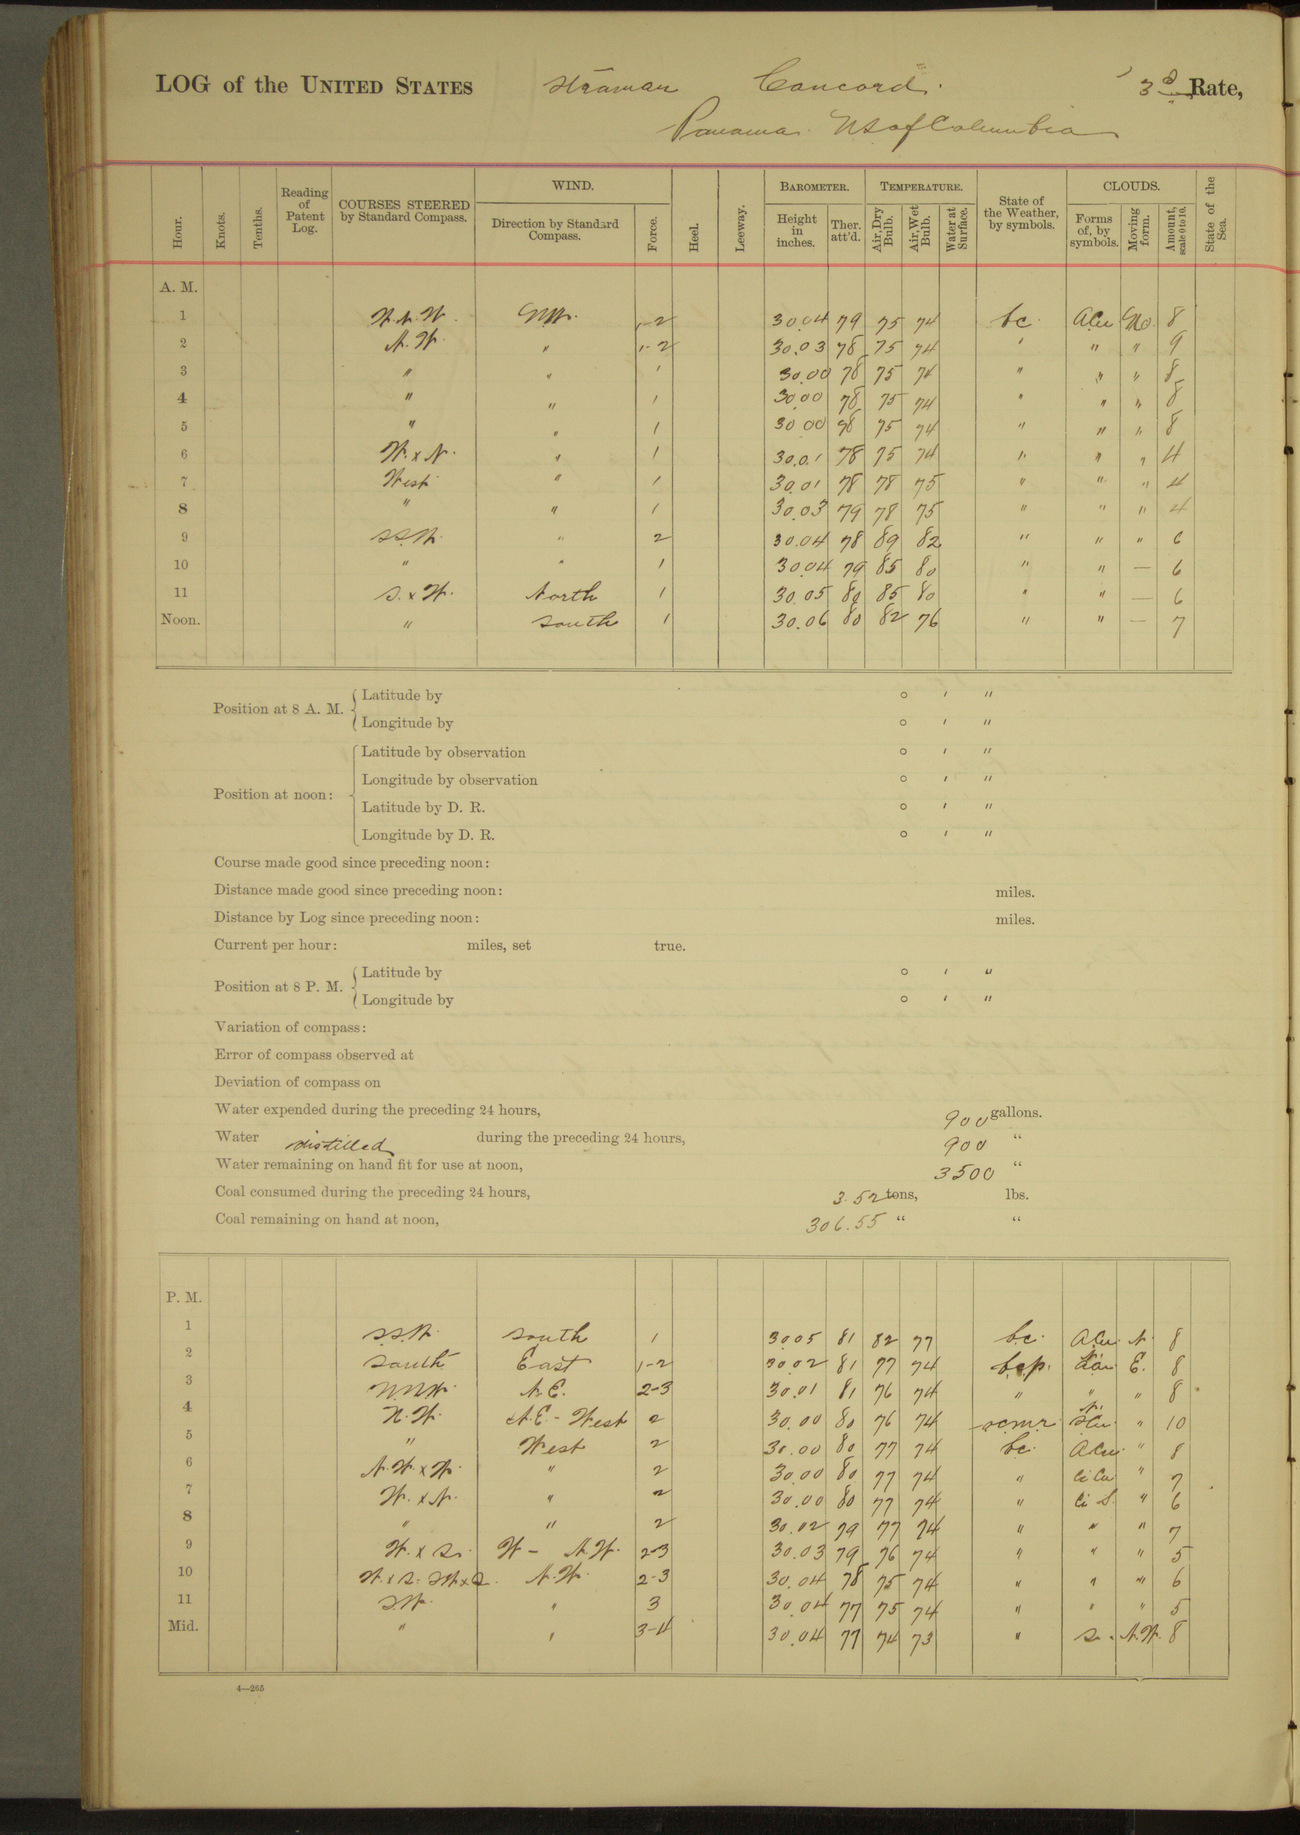 LOG of the UNITED STATES Steamer Concord. 3d Rate,
Panama. US of Columbia
Hour. Knots. Tenths. Reading of Patent Log. COURSES STEERED by Standard Compass. WIND. Direction by Standard Compass. Force. Heel. Leeway. BAROMETER. Height in inches. Ther. att'd. TEMPERATURE. Air, Dry Bulb. Air, Wet Bulb. Water at Surface. State of the Weather, by symbols. CLOUDS. Forms of, by symbols. Moving form. Amount, scale 0 to 10. State of the Sea.
A. M.
1 W.N.W. NW. 1-2 30.04 79 75 74 bc. A.Cu No. 8
2 N.W. " 1-2 30.03 78 75 74 ' " " 9
3 " " 1 30.00 78 75 74 " " " 8
4 " " 1 30.00 78 75 74 " " " 8
5 " " 1 30.00 78 75 74 " " " 8
6 W. x N. " 1 30.01 78 75 74 " " " 4
7 West " 1 30.01 78 78 75 " " " 4
8 " " 1 30.03 79 78 75 " " " 4
9 SSW. " 2 30.04 78 89 82 " " " 6
10 " " 1 30.04 79 85 80 " " — 6
11 S. x W. North 1 30.05 80 85 80 " " — 6
Noon. " South 1 30.06 80 82 76 " " — 7
Position at 8 A. M. { Latitude by ° ′ ″
Longitude by ° ′ ″
Position at noon: { Latitude by observation ° ′ ″
Longitude by observation ° ′ ″
Latitude by D. R. ° ′ ″
Longitude by D. R. ° ′ ″
Course made good since preceding noon:
Distance made good since preceding noon: miles.
Distance by Log since preceding noon: miles.
Current per hour: miles, set true.
Position at 8 P. M. { Latitude by ° ′ ″
Longitude by ° ′ ″
Variation of compass:
Error of compass observed at
Deviation of compass on
Water expended during the preceding 24 hours, 900 gallons.
Water distilled during the preceding 24 hours, 900 "
Water remaining on hand fit for use at noon, 3500 "
Coal consumed during the preceding 24 hours, 3.52 tons, lbs.
Coal remaining on hand at noon, 306.55 " "
P. M.
1 SSW. South 1 30.05 81 82 77 bc. A.Cu. N. 8
2 South East 1-2 30.02 81 77 74 bcp. E. 8
3 NNW. N.E. 2-3 30.01 81 76 74 " " " 8
4 N.W. N.E - West 2 30.00 80 76 74 N. S.Cu. " 10
5 " West 2 30.00 80 77 74 bc. A.Cu. " 8
6 N.W. x W. " 2 30.00 80 77 74 " Ci Cu " 7
7 W. x N. " 2 30.00 80 77 74 " Ci S. " 6
8 " " 2 30.02 79 77 74 " " " 7
9 W. x S. W - N.W. 2-3 30.03 79 76 74 " " " 5
10 W. x S. SW x S. N.W. 2-3 30.04 78 75 74 " " " 6
11 SW. " 3 30.04 77 75 74 " " " 5
Mid. " " 3-4 30.04 77 74 73 " S. N.W. 8
4—265